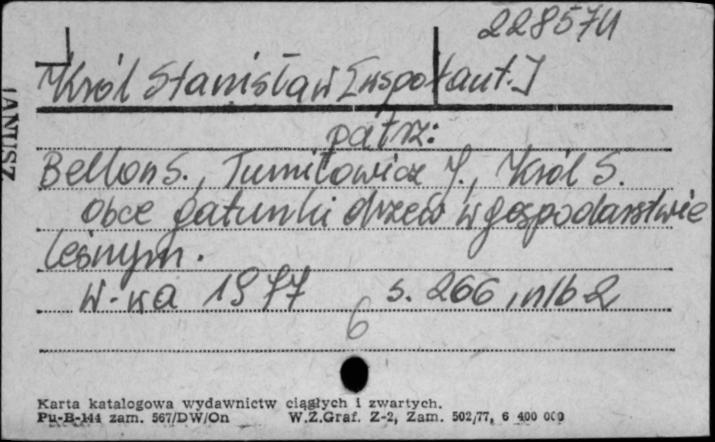 228574
Król Stanisław [współaut.]
JANTUSZ
patrz:
Bellon S., Tumiłowicz J., Król S.
Obce gatunki drzew w gospodarstwie
leśnym.
W-wa 1977 s. 266, nlb 2
6
Karta katalogowa wydawnictw ciągłych i zwartych.
Pu-B-144 zam. 567/DW/On W.Z.Graf. Z-2, Zam. 502/77, 6 400 000